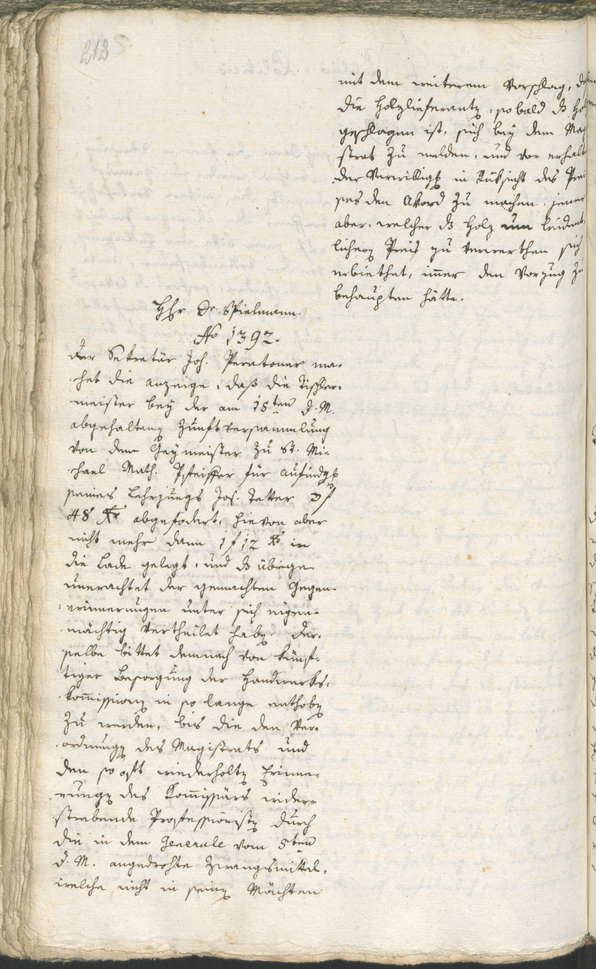 212
mit dem weiterem Vorschlag, daß
die Holzlieferanten, sobald ds Holz
geschlagen ist, sich bey dem Magi
strat zu melden, und vor erhalt
der Verwilligg in Rüksicht des Prei
ses den Akord zu machen, jener
aber, welcher ds Holz um leident
lichern Preis zu verwerthen sich
erbiethet, immer den Vorzug zu
behaupten hätte.
Hhr Dr Spielmann.
No 1392.
Der Sekretär Joh. Peratoner ma-
chet die anzeige, daß die Tischler-
meister bey der am 15ten d. M.
abgehalteng Zunftversammlung
von dem Geymeister zu St. Mi-
chael Math. Pfeiffer für aufindgg
seines Lehrjungs Jos. Tetter 3 f
48 Xr abgefodert, hievon aber
nicht mehr dann 1 f 12 Xr in
die Lade gelegt, und ds übrige
unerachtet der gemachten Gegen-
erinnerungen unter sich eigen-
mächtig vertheilet habg. Der-
selbe bittet demnach von künf-
tiger Besorgung der Handwerks-
Kommission in so lange enthobg
zu werden, bis die den Ver-
ordnungg des Magistrats und
den so oft wiederholtg Erinne-
rungg des Kommissärs wider-
strebende Professionistg durch
die in dem Generale vom 5ten
d. M. angedrohte Zwangsmittel,
welche nicht in seing Mächten